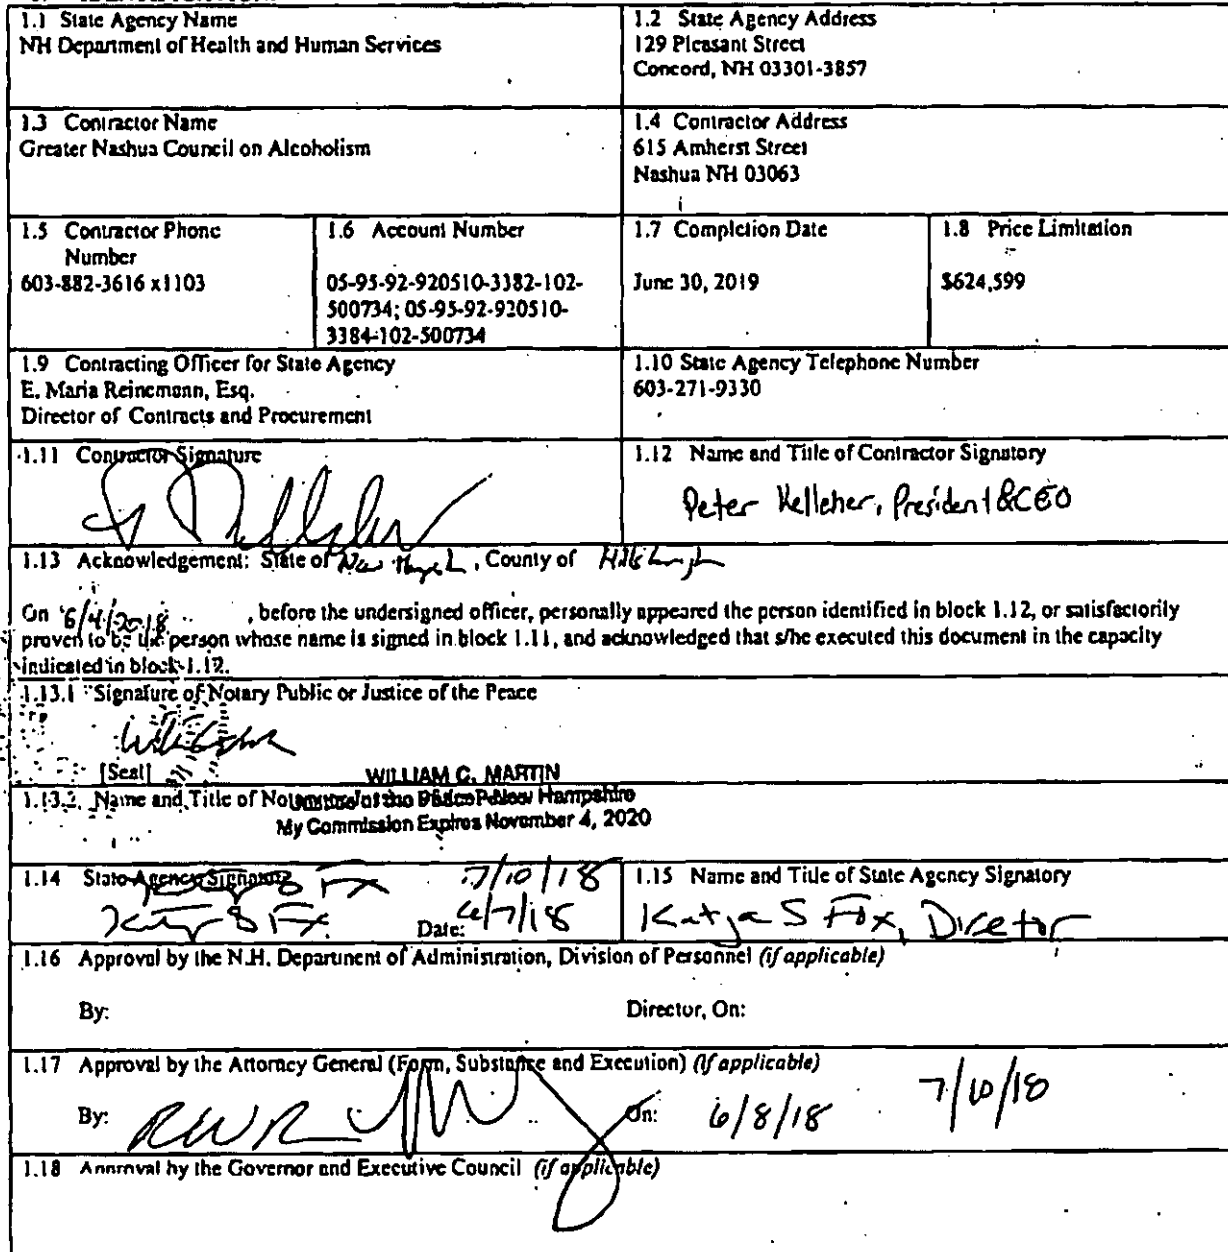 1.1 State Agency Name
NH Department of Health and Human Services
1.2 State Agency Address
129 Pleasant Street
Concord, NH 03301-3857
1.3 Contractor Name
Greater Nashua Council on Alcoholism
1.4 Contractor Address
615 Amherst Street
Nashua NH 03063
1.5 Contractor Phone
Number
603-882-3616 x1103
1.6 Account Number
05-95-92-920510-3382-102-
500734; 05-95-92-920510-
3384-102-500734
1.7 Completion Date
June 30, 2019
1.8 Price Limitation
$624,599
1.9 Contracting Officer for State Agency
E. Maria Reinemann, Esq.
Director of Contracts and Procurement
1.10 State Agency Telephone Number
603-271-9330
1.11 Contractor Signature
1.12 Name and Title of Contractor Signatory
Peter Kelleher, President & CEO
1.13 Acknowledgement: State of New Hampsh, County of Hillsborough
On 6/4/2018, before the undersigned officer, personally appeared the person identified in block 1.12, or satisfactorily
proven to be the person whose name is signed in block 1.11, and acknowledged that s/he executed this document in the capacity
indicated in block 1.12.
1.13.1 Signature of Notary Public or Justice of the Peace
[Seal]
WILLIAM C. MARTIN
1.13.2 Name and Title of
New Hampshire
My Commission Expires November 4, 2020
1.14 State Agency Signature
7/10/18
Date: 6/7/18
1.15 Name and Title of State Agency Signatory
Katja S Fox, Director
1.16 Approval by the N.H. Department of Administration, Division of Personnel (if applicable)
By: Director, On:
1.17 Approval by the Attorney General (Form, Substance and Execution) (if applicable)
By: On: 6/8/18 7/10/18
1.18 Approval by the Governor and Executive Council (if applicable)